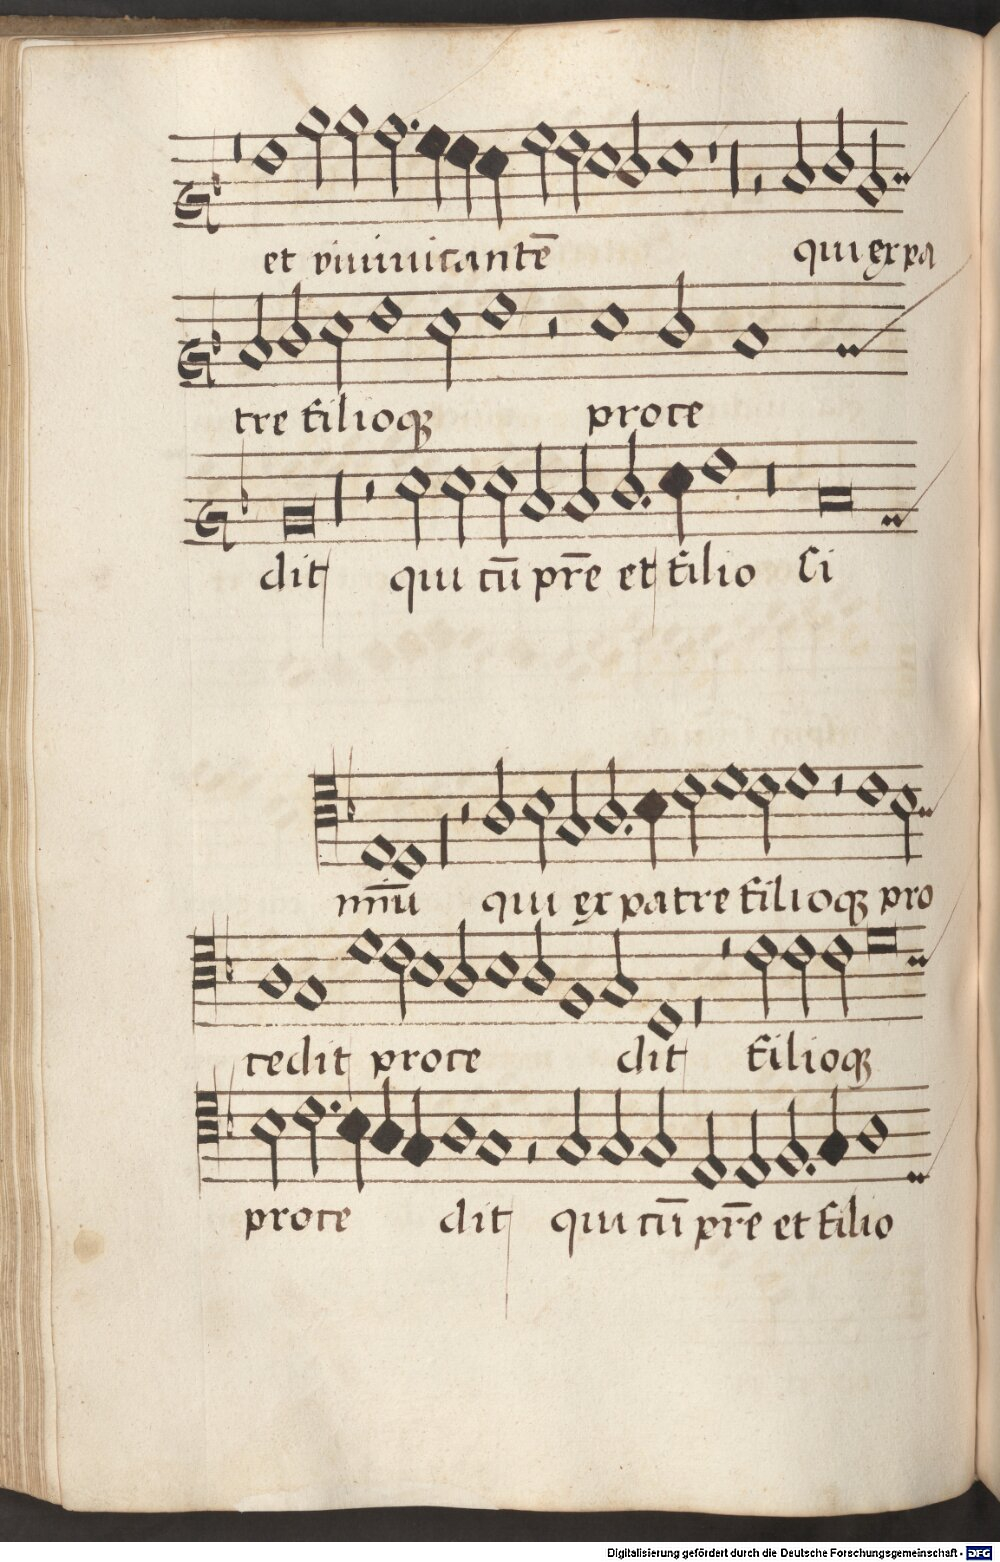 et viuiuicantē qui ex pa
tre filioqꝫ proce
dit qui cū pr̄e et filio si
mīnū qui ex patre filioqꝫ pro
cedit proce dit filioqꝫ
proce dit qui cū pr̄e et filio
Digitalisierung gefördert durch die Deutsche Forschungsgemeinschaft - DFG